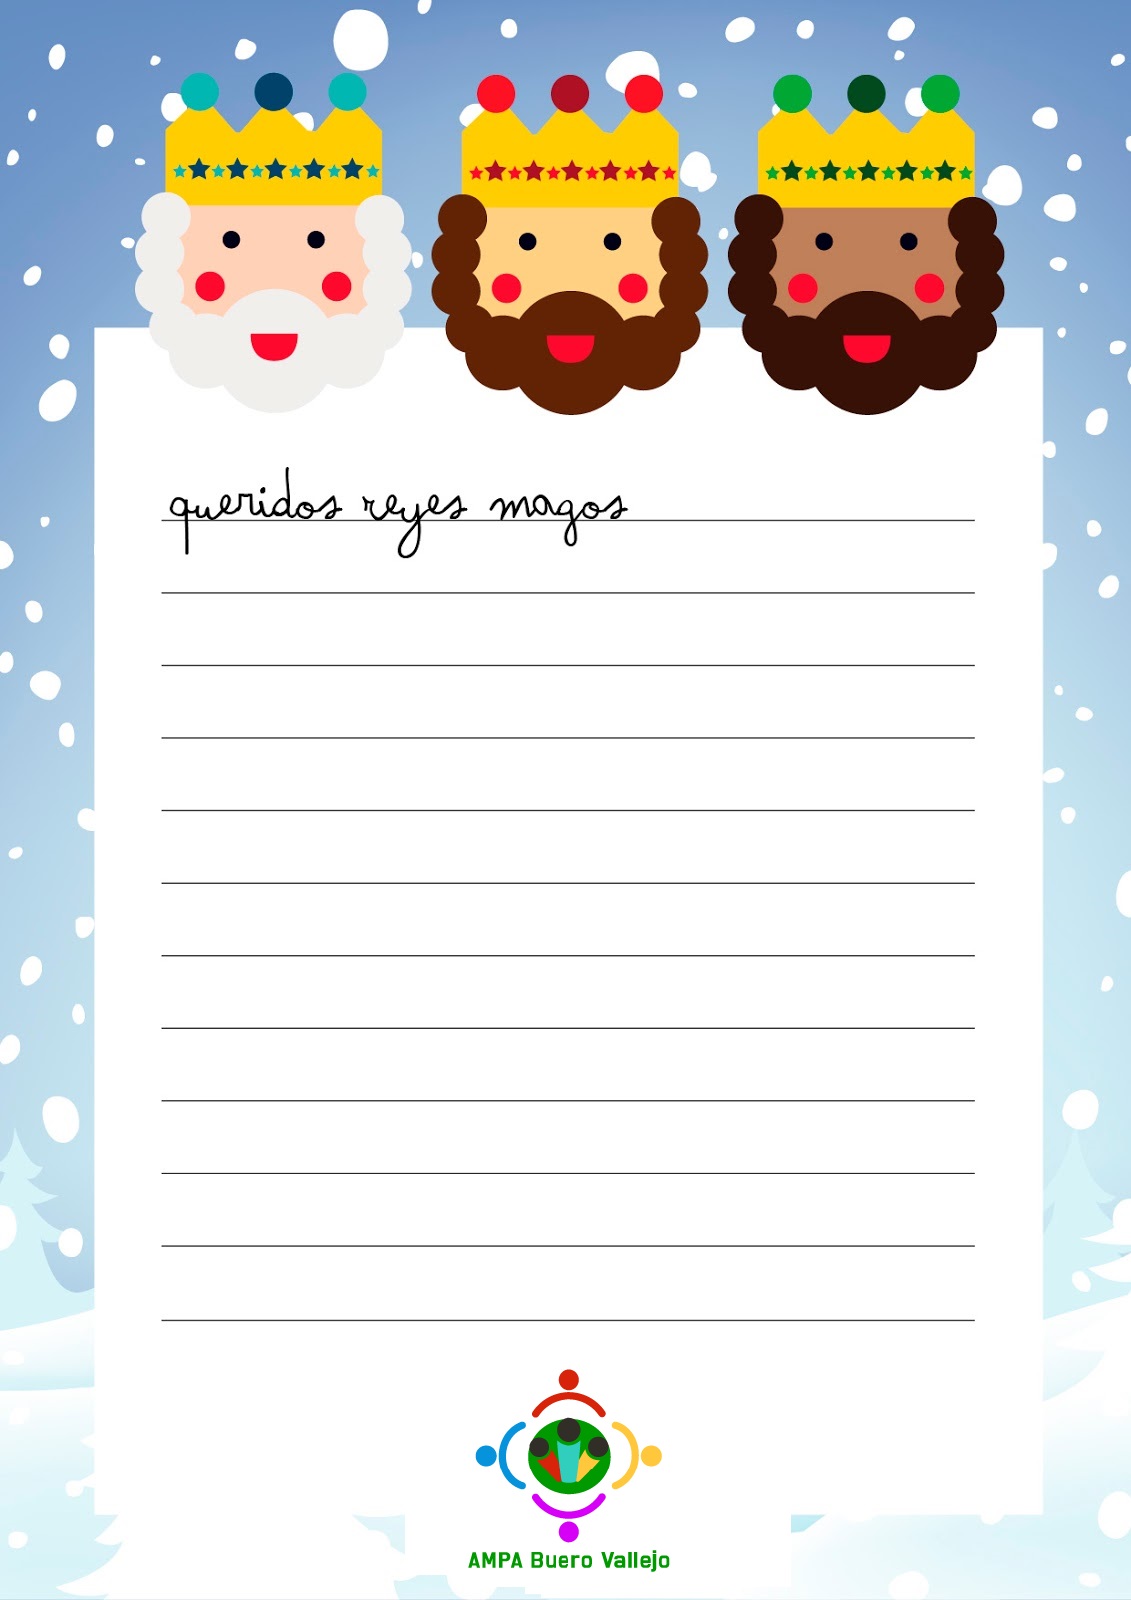 queridos reyes magos
AMPA Buero Vallejo